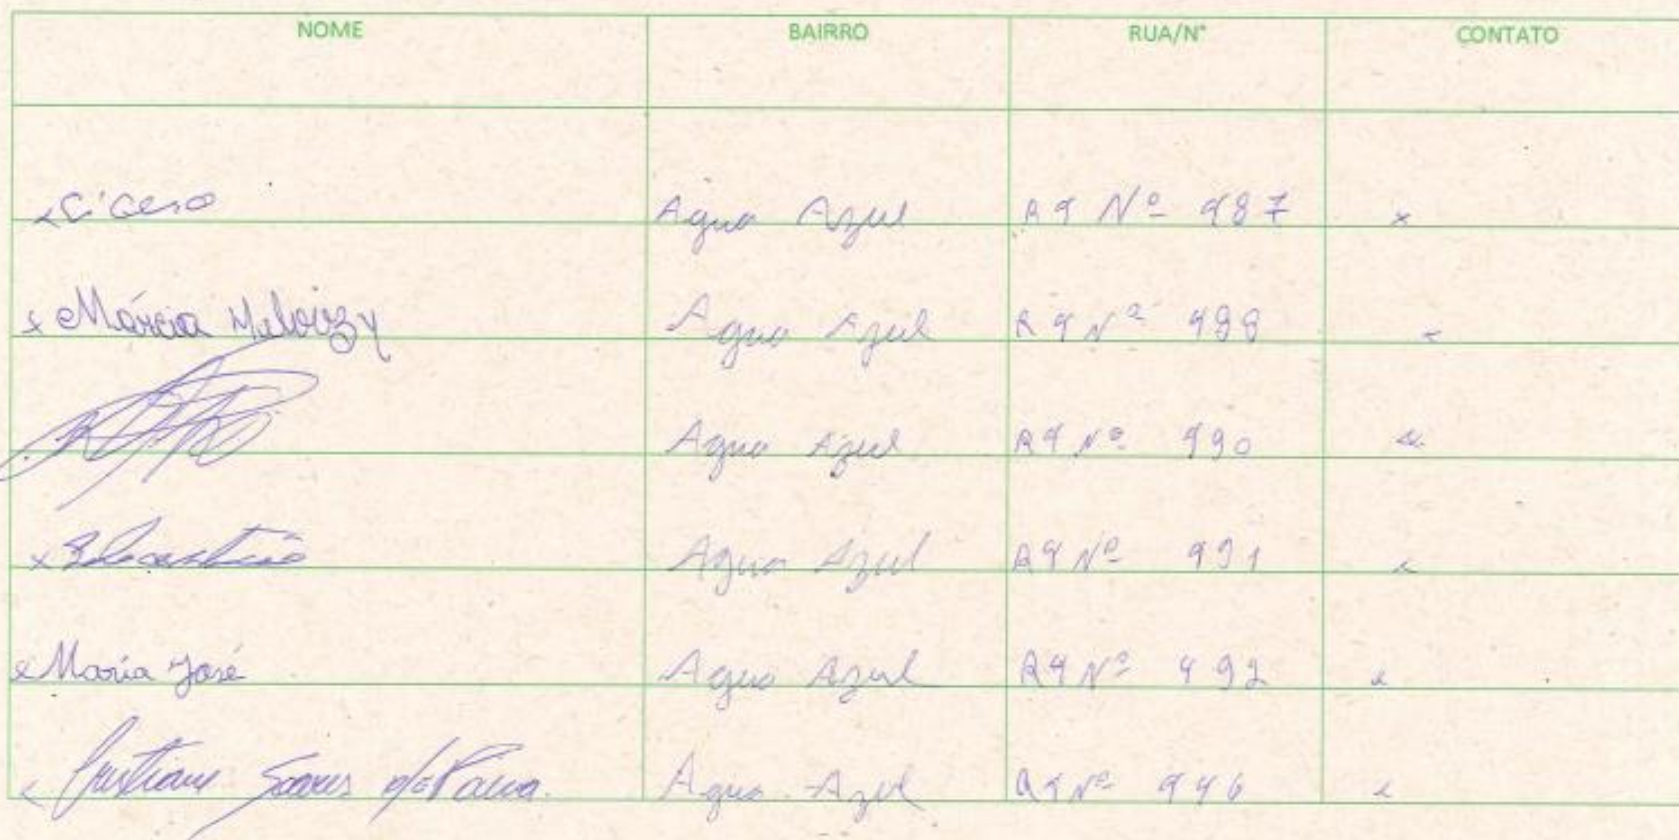 NOME BAIRRO RUA/N° CONTATO
x Cicero Agua Azul R9 Nº 987 x
x Márcia Agua Azul R9 Nº x
Agua Azul R9 Nº 990 x
x Agua Azul R9 Nº 991 x
x Maria José Agua Azul R9 Nº 992 x
x Cristiane Soares de Paiva. Agua Azul R9 Nº 946 x